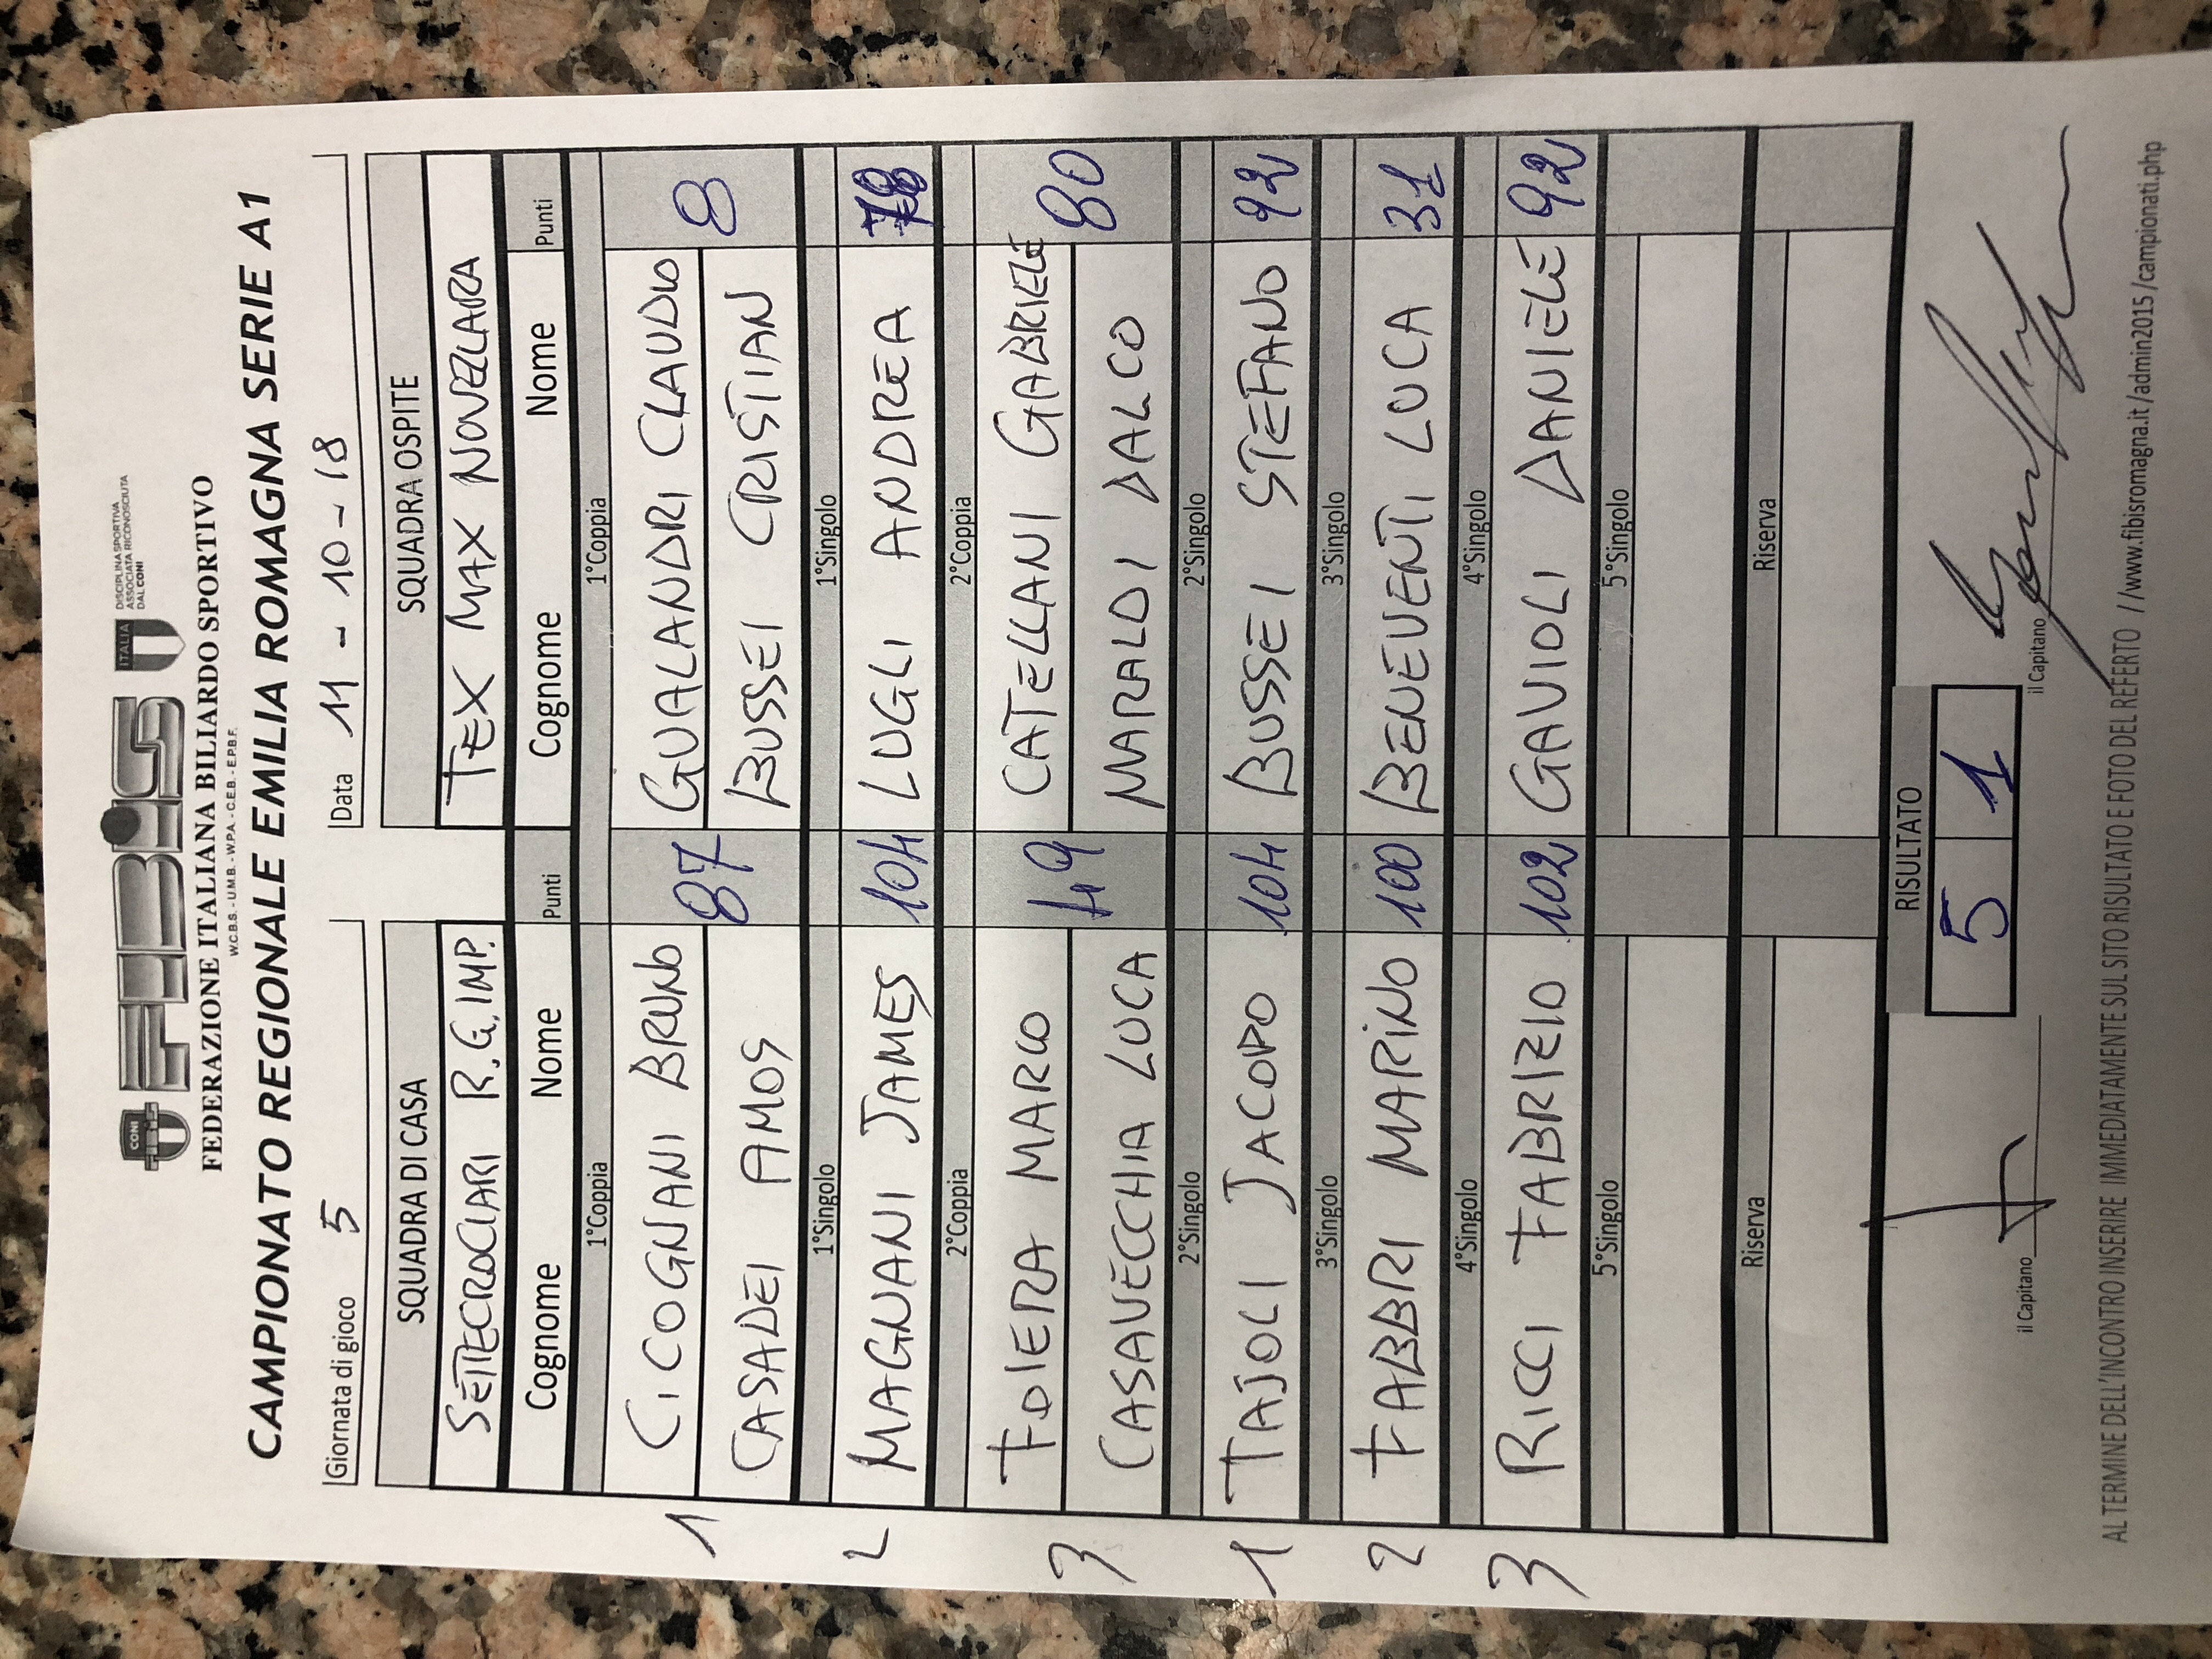 CONI
FIBiS
ITALIA
DISCIPLINA SPORTIVA
ASSOCIATA RICONOSCIUTA
DAL CONI
FEDERAZIONE ITALIANA BILIARDO SPORTIVO
W.C.B.S. - U.M.B. - W.P.A. - C.E.B. - E.P.B.F.
CAMPIONATO REGIONALE EMILIA ROMAGNA SERIE A1
Giornata di gioco 5 Data 11-10-18
SQUADRA DI CASA SQUADRA OSPITE
SETTECROCIARI R.G.IMP. TEX MAX NOVELLARA
Cognome Nome Punti Cognome Nome Punti
1°Coppia 1°Coppia
1 CICOGNANI BRUNO 87 GUALANDRI CLAUDIO 8
CASADEI AMOS BUSSEI CRISTIAN
1°Singolo 1°Singolo
2 MAGNANI JAMES 104 LUGLI ANDREA
2°Coppia 2°Coppia
3 FOIERA MARCO 49 CATELLANI GABRIELE 80
CASAVECCHIA LUCA MARALDI DALCO
2°Singolo 2°Singolo
1 TAJOLI JACOPO 104 BUSSEI STEFANO 92
3°Singolo 3°Singolo
2 FABBRI MARINO 100 BENEVENTI LUCA 31
4°Singolo 4°Singolo
3 RICCI FABRIZIO 102 GAVIOLI DANIELE 92
5°Singolo 5°Singolo
Riserva Riserva
RISULTATO
5 1
il Capitano il Capitano
AL TERMINE DELL'INCONTRO INSERIRE IMMEDIATAMENTE SUL SITO RISULTATO E FOTO DEL REFERTO //www.fibisromagna.it/admin2015/campionati.php